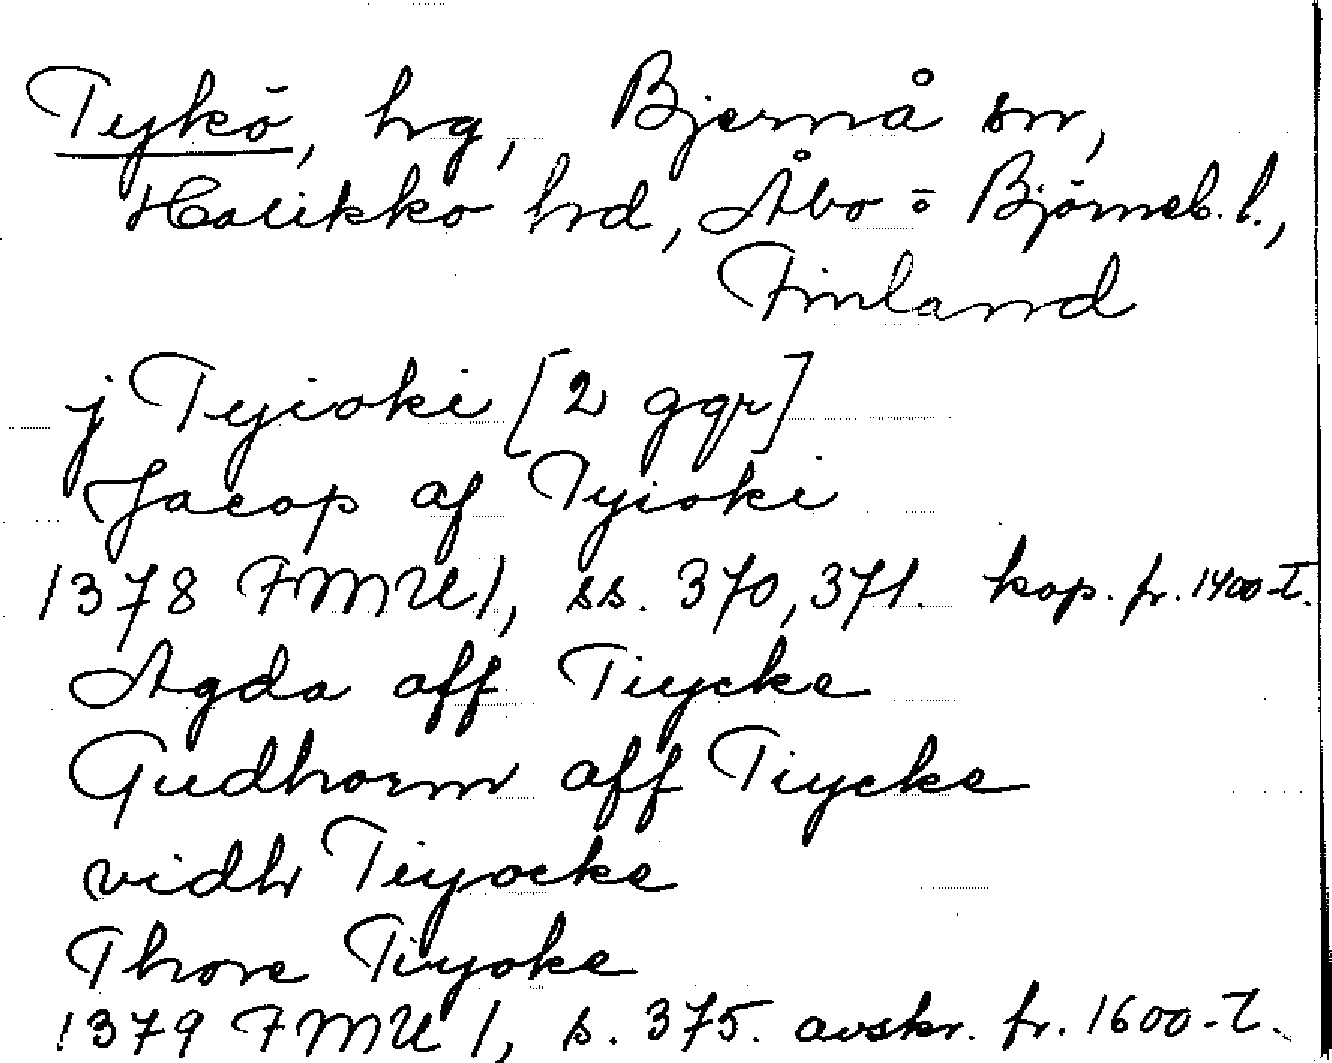 Tykö, hg, Bjernå sn,
Halikko hd, Åbo-Björneb. l.,
Finland
j Tyioki [2 ggr]
Jacop af Tyioki
1378 FMU 1, ss. 370, 371. kop. fr. 1400-t.
Agda aff Tiycke
Gudhorm aff Tiycke
vidh Tiyocke
Thore Tiyoke
1379 FMU 1, s. 375. avskr. fr. 1600-t.